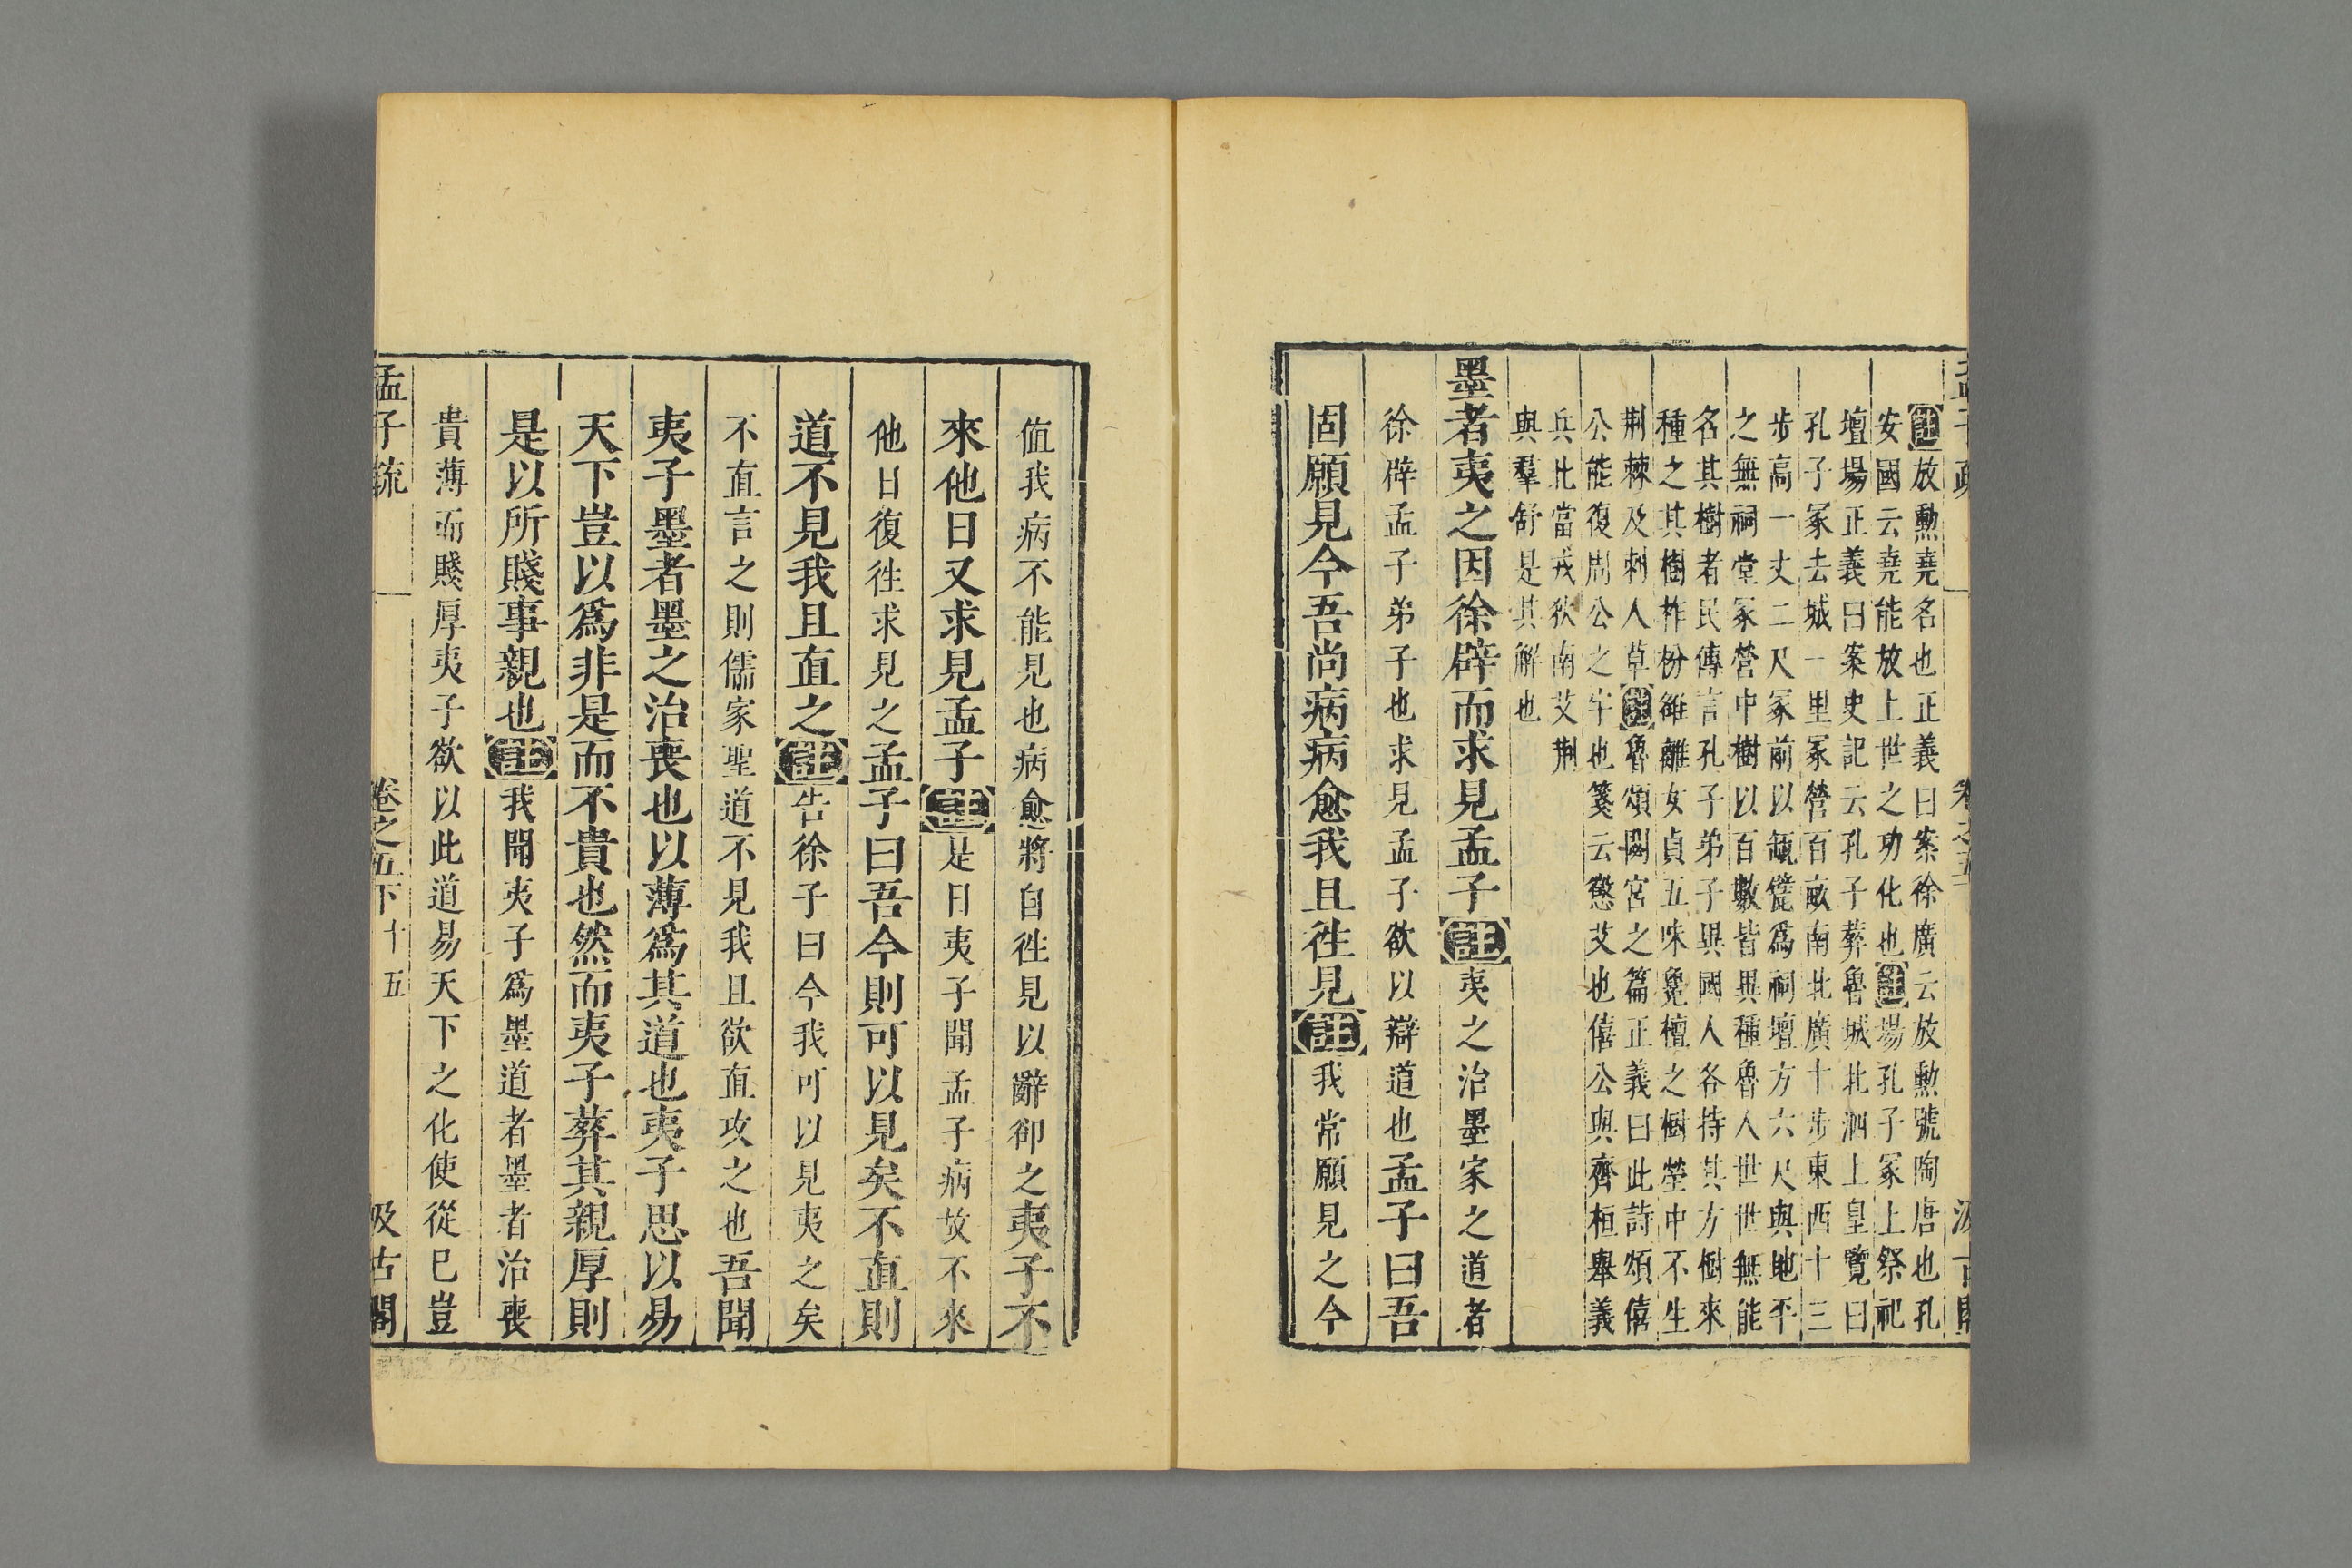 孟子疏
卷之五
汲古閣
註放勳堯名也正義曰案徐廣云放勳號陶唐也孔
安國云堯能放上世之功化也註場孔子冢上祭祀
壇場正義曰案史記云孔子葬魯城北泗上皇覽曰
孔子冢去城一里冢營百畝南北廣十步東西十三
步高一丈二尺冢前以瓴甓爲祠壇方六尺與地平
之無祠堂冢營中樹以百數皆異種魯人世世無能
名其樹者民傳言孔子弟子異國人各持其方樹來
種之其樹柞枌雒離女貞五味毚檀之樹塋中不生
荆棘及刺人草註魯頌閟宮之篇正義曰此詩頌僖
公能復周公之宇也箋云懲艾也僖公與齊桓舉義
兵北當戎狄南艾荆
與羣舒是其解也
墨者夷之因徐辟而求見孟子註夷之治墨家之道者
徐辟孟子弟子也求見孟子欲以辯道也孟子曰吾
固願見今吾尚病病愈我且徃見註我常願見之今
値我病不能見也病愈將自徃見以辭卻之夷子不
來他日又求見孟子註是日夷子聞孟子病故不來
他日復徃求見之孟子曰吾今則可以見矣不直則
道不見我且直之註告徐子曰今我可以見夷之矣
不直言之則儒家聖道不見我且欲直攻之也吾聞
夷子墨者墨之治喪也以薄爲其道也夷子思以易
天下豈以爲非是而不貴也然而夷子葬其親厚則
是以所賤事親也註我聞夷子爲墨道者墨者治喪
貴薄而賤厚夷子欲以此道易天下之化使從已豈
孟子疏
卷之五下
十五
汲古閣